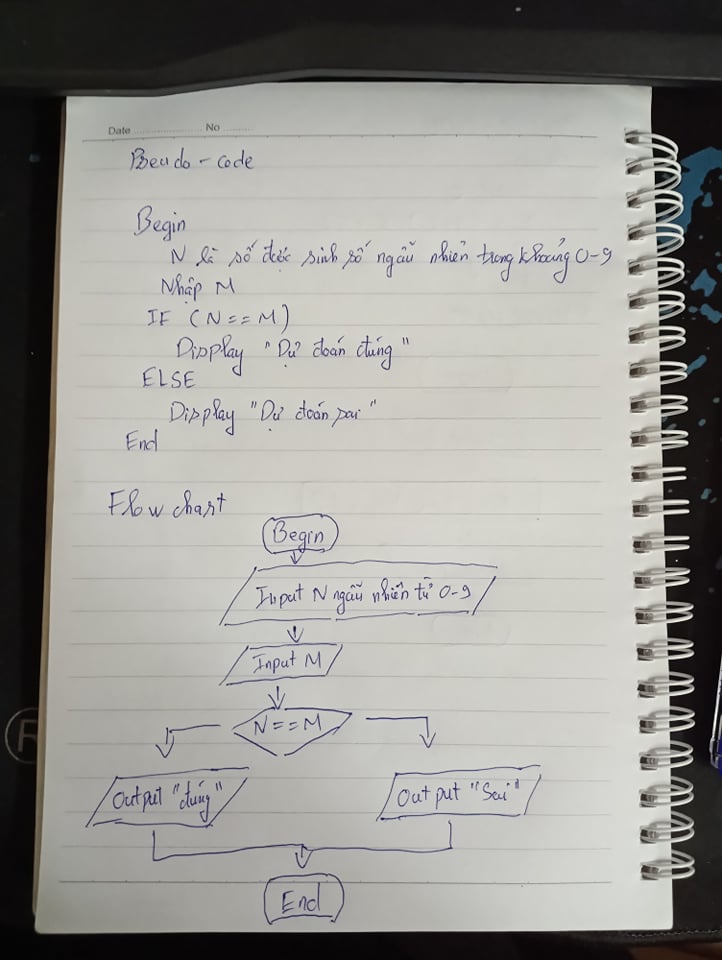 Date No
Pseudo-code
Begin
N là số được sinh số ngẫu nhiên trong khoảng 0-9
Nhập M
IF (N==M)
Display "Dự đoán đúng"
ELSE
Display "Dự đoán sai"
End
Flow chart
Begin
Input N ngẫu nhiên từ 0-9
Input M
N==M
Output "đúng"
Output "Sai"
End
R